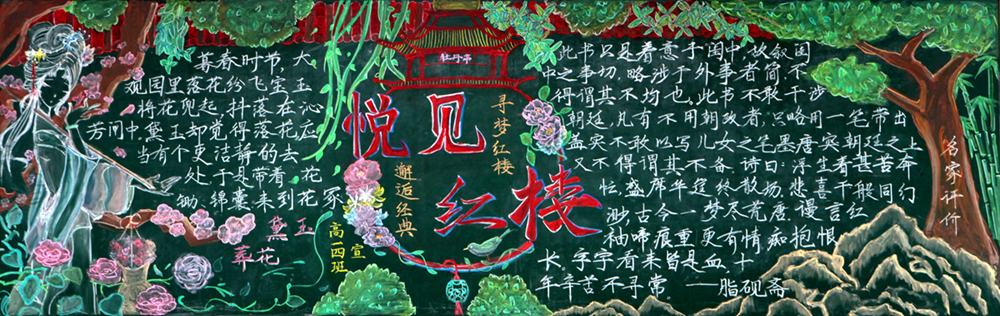 暮春时节,大
观园里落花纷飞宝玉
将花兜起,抖落在沁
芳闸中黛玉却觉得落花应
当有个更洁静的去
处于是带着花
锄,锦囊来到花冢
黛玉
葬花
牡丹亭
悦见
红楼
寻梦红楼
邂逅经典
高一四班
宣
此书只是着意于闺中,故叙闺
中之事切,略涉于外事者简,不
得谓其不均也。此书不敢干涉
朝廷,凡有不用朝政者,只略用一笔带出
盖实不敢以写儿女之笔墨唐突朝廷之上
又不得谓其不备。诗曰:浮生着甚苦奔
忙,盛席华筵终散场。悲喜千般同幻
渺,古今一梦尽荒唐。谩言红
袖啼痕重,更有情痴抱恨
长。字字看来皆是血,十
年辛苦不寻常。——脂砚斋
名家评价